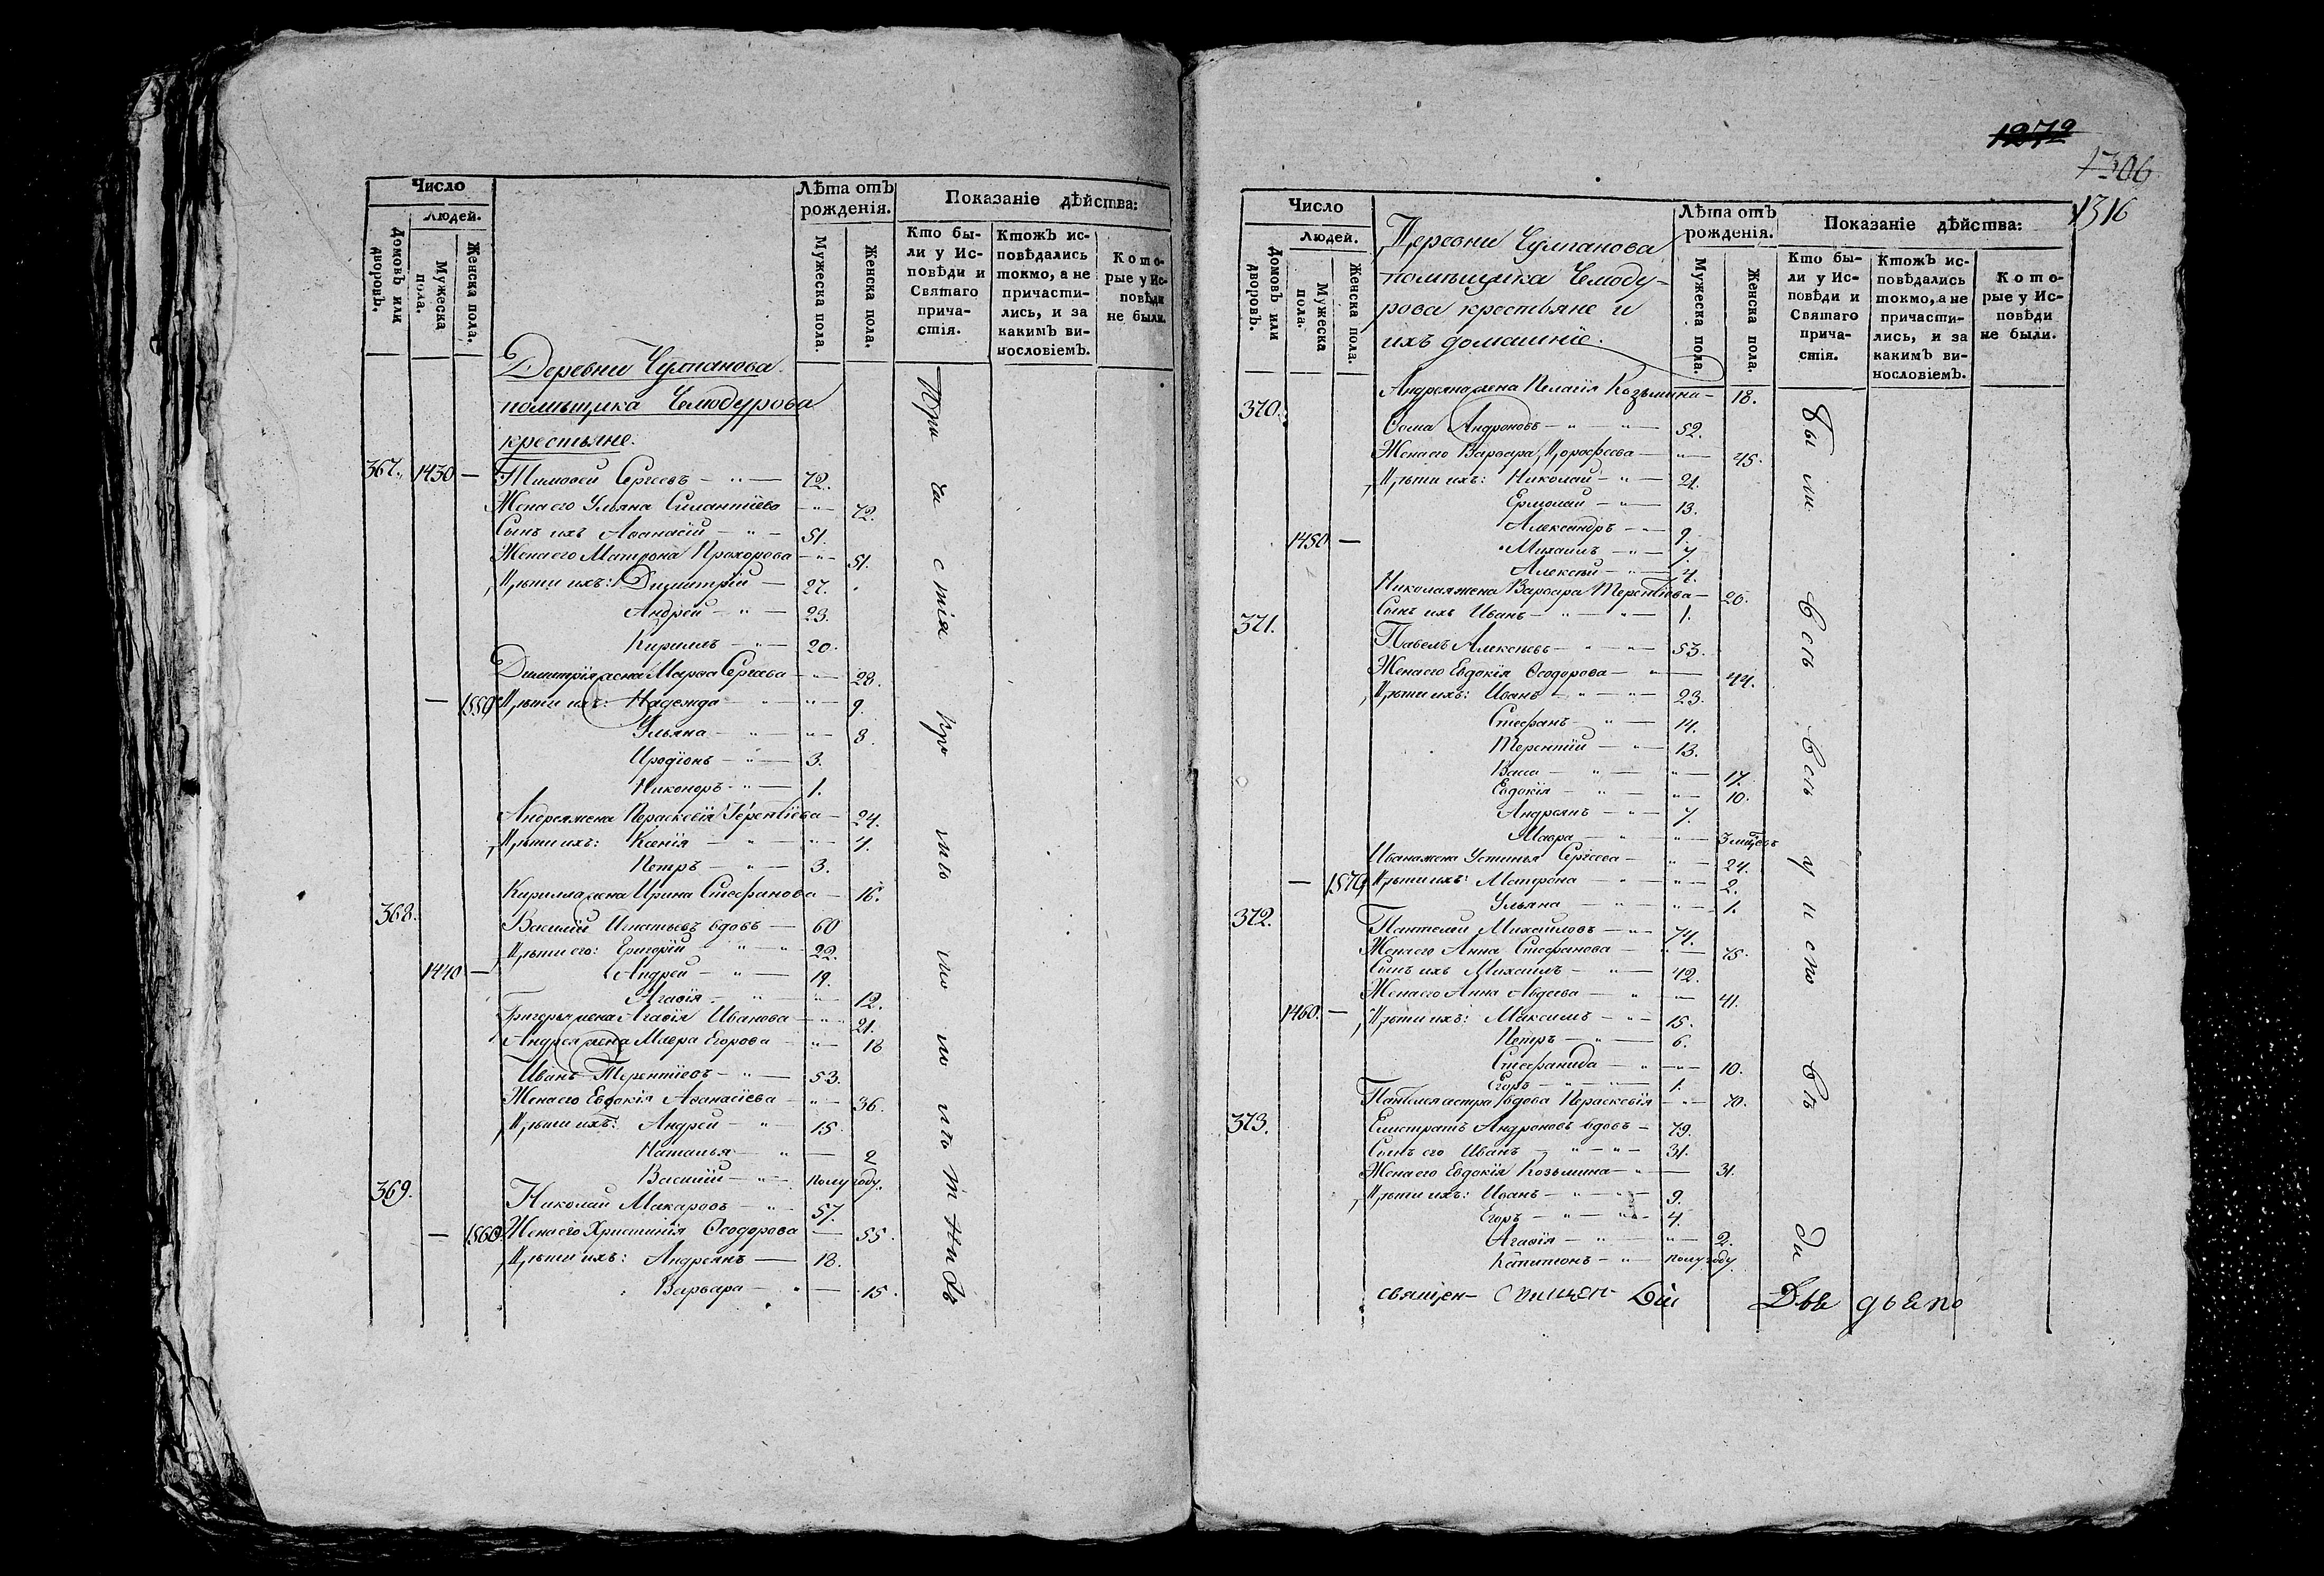 Число
Людей.
Домовъ или дворовъ.
Мужеска пола.
Женска пола.
Лѣта отъ рожденія.
Мужеска пола.
Женска пола.
Показаніе дѣйства:
Кто бы-
ли у Ис-
повѣди и
Святаго
прича-
стія.
Ктожъ ис-
повѣдались
токмо, а не
причасти-
лись, и за
какимъ ви-
нословіемъ.
Кото-
рые у Ис-
повѣди
не были.
Деревни Чулпанова
помѣщика Чемодурова
крестьяне.
367. 1430 — Тимофей Сергеевъ — 72.
Жена его Ульяна Силантіева — 72.
Сынъ ихъ Аѳанасій — 51.
Жена его Матрона Прохорова — 51.
Дѣти ихъ: Димитрій — 27.
Андрей — 23.
Кириллъ — 20.
Димитрія жена Марѳа Сергеева — 28.
— 1550 Дѣти ихъ: Надежда — 9.
Ульяна — 8.
Иродіонъ — 3.
Никоноръ — 1.
Андрея жена Параскевія Терентіева — 24.
Дѣти ихъ: Ксенія — 7.
Петръ — 3.
Кирилла жена Ирина Стефанова — 16.
368. Василій Игнатьевъ вдовъ — 60
Дѣти его: Григорій — 22.
1440 — Андрей — 19.
Агаѳія — 12.
Григорья жена Агаѳія Иванова — 21.
Андрея жена Мавра Егорова — 18
Иванъ Терентіевъ — 53.
Жена его Евдокія Аѳанасіева — 36.
Дѣти ихъ: Андрей — 15
Наталья — 2
Василій — полугоду.
369. Николай Макаровъ — 57.
— 1560. Жена его Христинія Ѳеодорова — 55.
Дѣти ихъ: Андреянъ — 18.
Варвара — 15.
1272
1306
1316
Число
Людей.
Домовъ или дворовъ.
Мужеска пола.
Женска пола.
Деревни Чулпанова
помѣщика Чемоду-
рова крестьяне и
ихъ домашніе.
Лѣта отъ рожденія.
Мужеска пола.
Женска пола.
Показаніе дѣйства:
Кто бы-
ли у Ис-
повѣди и
Святаго
прича-
стія.
Ктожъ ис-
повѣдались
токмо, а не
причасти-
лись, и за
какимъ ви-
нословіемъ.
Кото-
рые у Ис-
повѣди
не были.
Андреяна жена Пелагія Козьмина — 18.
370. Ѳома Андроновъ — 52.
Жена его Варвара Дорофеева — 45.
Дѣти ихъ: Николай — 21.
Ермолай — 13.
Александръ — 9.
1450 — Михаилъ — 7.
Алексѣй — 4.
Николая жена Варвара Терентіева — 20.
Сынъ ихъ Иванъ — 1.
371. Павелъ Алексѣевъ — 53.
Жена его Евдокія Ѳеодорова — 44.
Дѣти ихъ: Иванъ — 23.
Стефанъ — 14.
Терентій — 13.
Васса — 17.
Евдокія — 10.
Андреянъ — 7.
Мавра — 3 мѣсяцовъ
Ивана жена Устинья Сергеева — 24.
— 1570 Дѣти ихъ: Матрона — 2.
Ульяна — 1.
372. Пантелей Михайловъ — 74.
Жена его Анна Стефанова — 75.
Сынъ ихъ Михаилъ — 42.
Жена его Анна Авдеева — 41.
1460. — Дѣти ихъ: Максимъ — 15.
Петръ — 6.
Стефанида — 10.
Егоръ — 1.
Пантелея сестра вдова Параскевія — 70.
373. Елистратъ Андроновъ вдовъ — 79.
Сынъ его Иванъ — 31.
Жена его Евдокія Козьмина — 31.
Дѣти ихъ: Иванъ — 9.
Егоръ — 4.
Агаѳія — 2.
Капитонъ — полугоду.
Были всѣ всѣ у испо вѣ ди